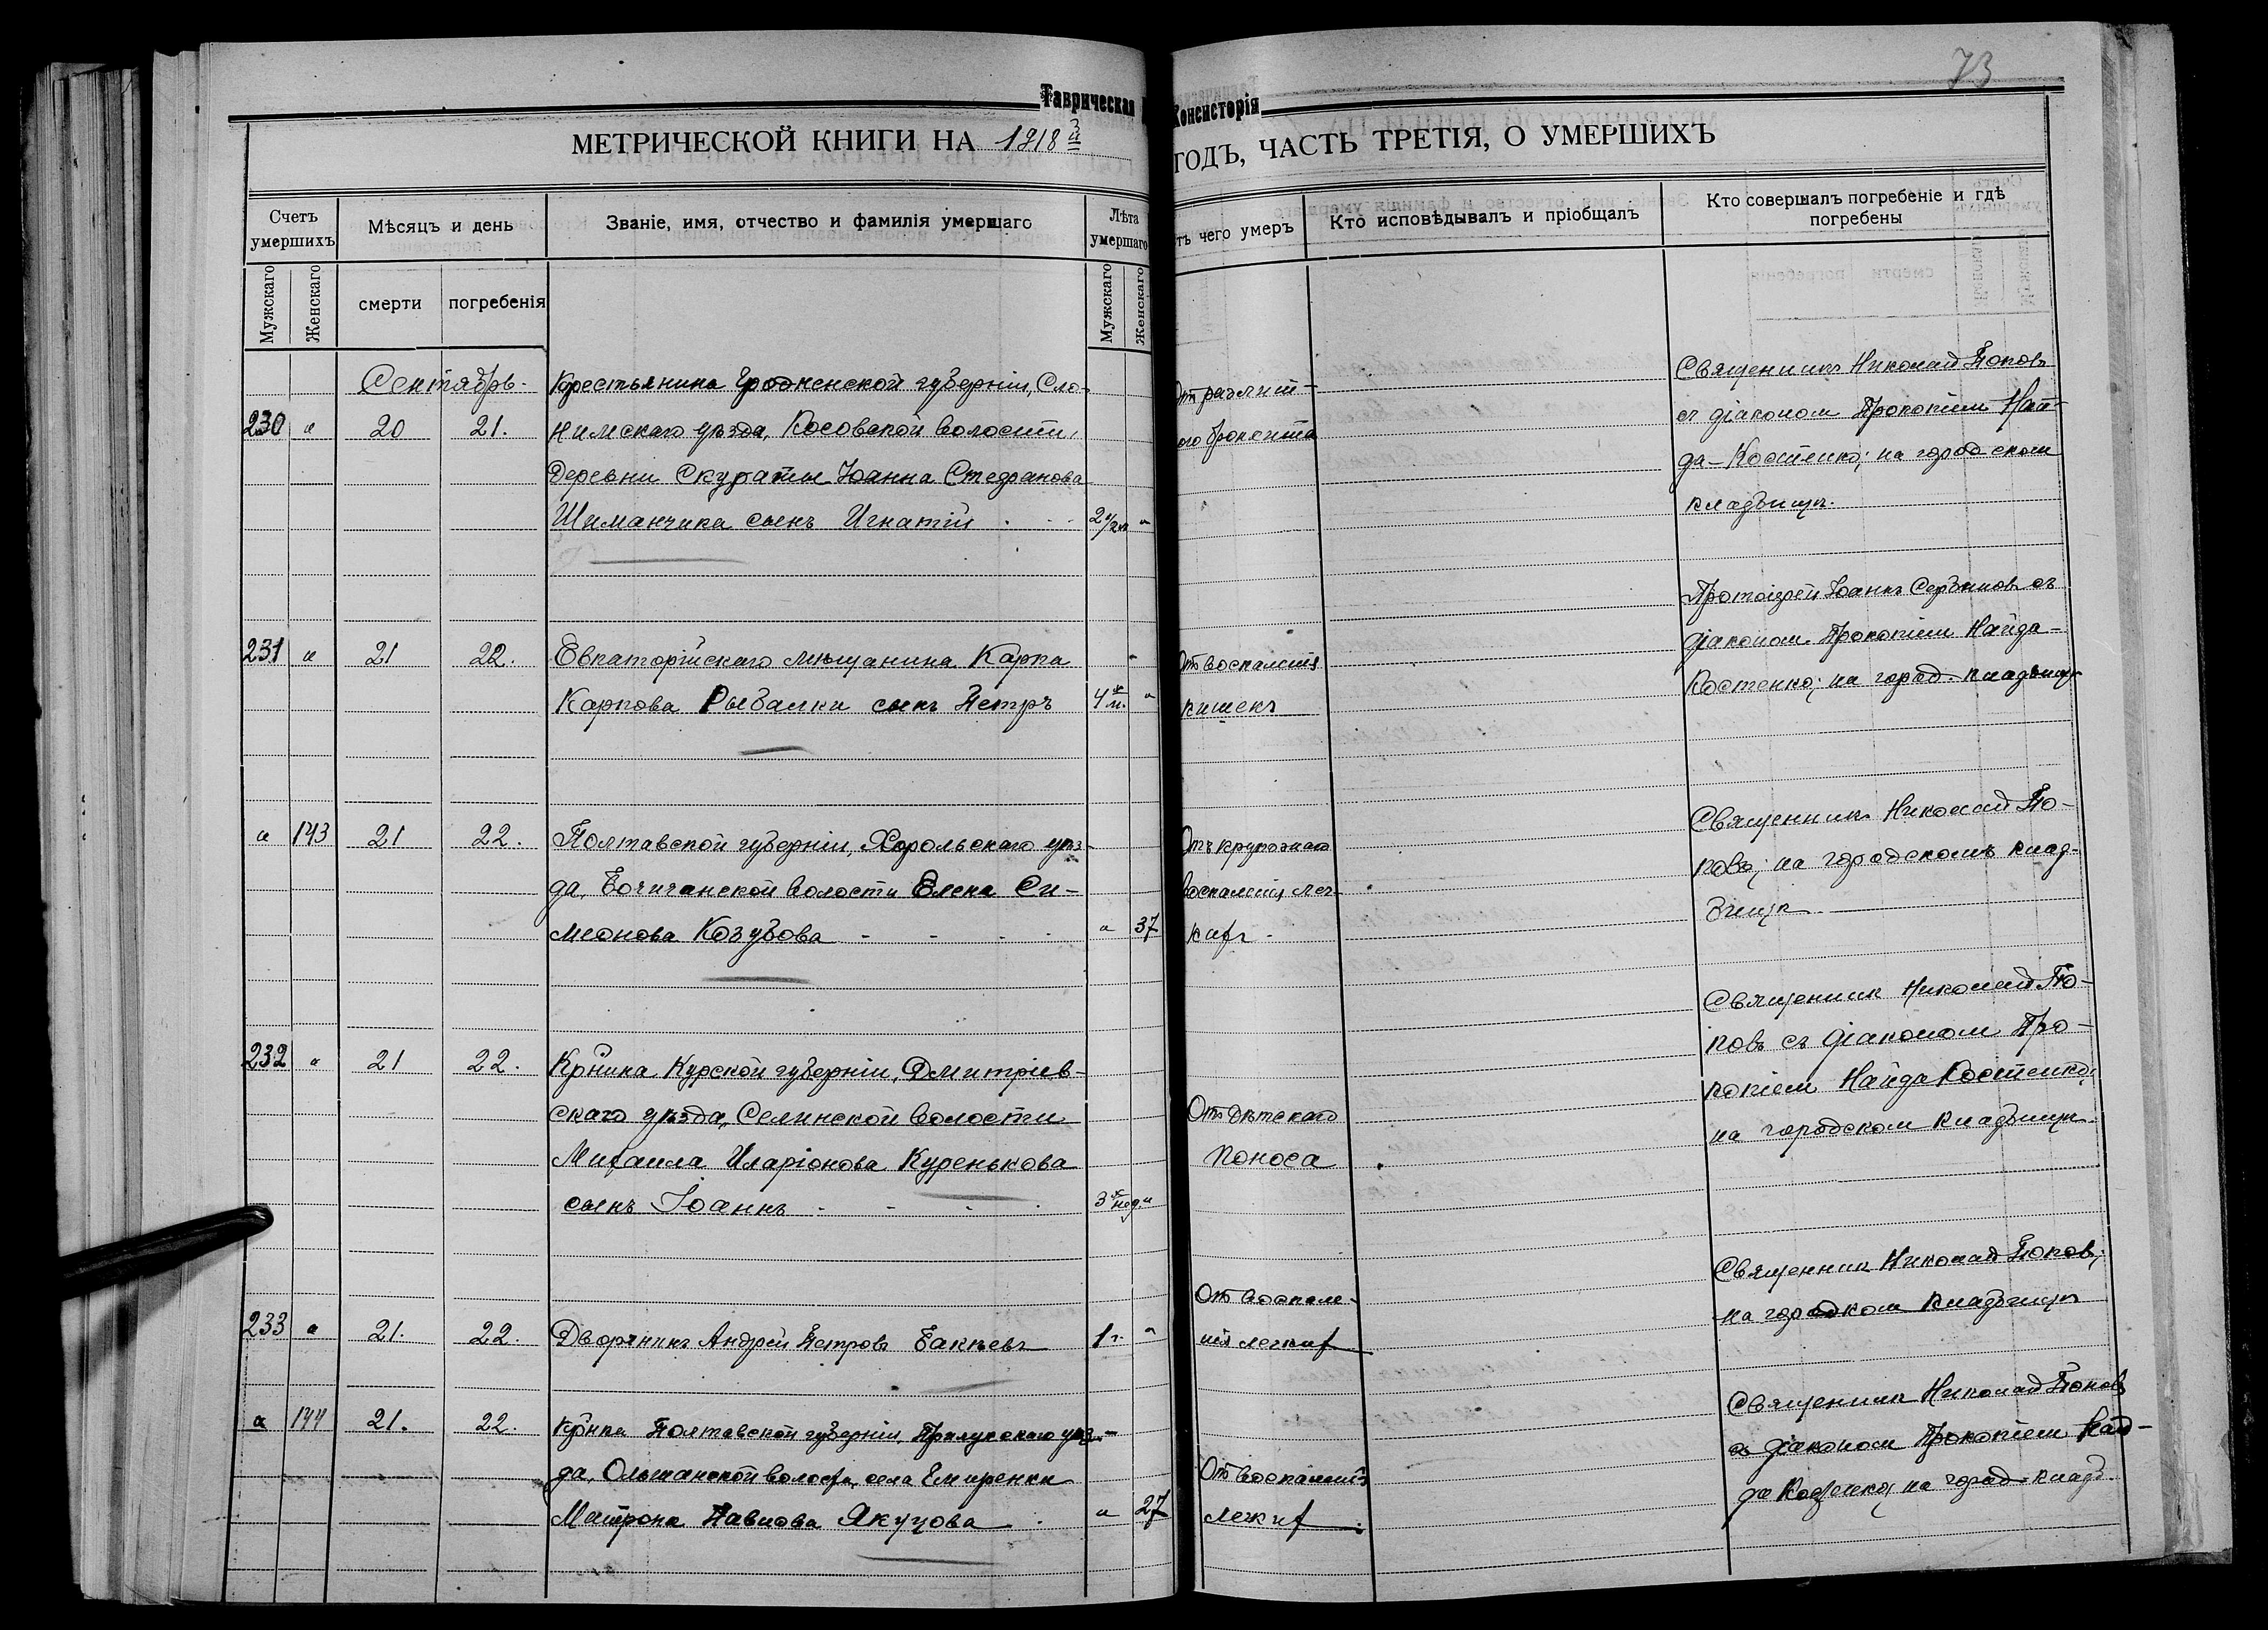 73
Таврическая Консисторія
МЕТРИЧЕСКОЙ КНИГИ НА 1918й ГОДЪ, ЧАСТЬ ТРЕТІЯ, О УМЕРШИХЪ
Счетъ умершихъ
Мѣсяцъ и день
Званіе, имя, отчество и фамилія умершаго
Лѣта умершаго
тъ чего умеръ
Кто исповѣдывалъ и пріобщалъ
Кто совершалъ погребеніе и гдѣ погребены
Мужскаго
Женскаго
смерти
погребенія
Мужскаго
Женскаго
Сентябрь.
230 " 20 21.
Крестьянина Гродненской губерніи, Сло-
нимскаго уѣзда, Косовской волости,
деревни Скураты Іоанна Стефанова
Шиманчика сынъ Игнатій
2 1/2 м "
бронхита
Священникъ Николай Поповъ
съ діакономъ Прокопіем Най-
да-Костенко; на городском
кладбищѣ.
231 " 21 22.
Евпаторійскаго мѣщанина Карпа
Карпова Рыбалки сынъ Петръ
4 м. "
Отъ воспаленія
кишекъ
Протоіерей Іоаннъ Сербиновъ съ
діакономъ Прокопіем Найда-
Костенко; на город. кладбищѣ
" 143 21 22.
Полтавской губерніи, Хорольскаго уѣз-
да, волости Елена Си-
меонова Козубова
" 37
Отъ крупознаго
воспаленія лег-
кихъ.
Священник Николай По-
повъ; на городскомъ клад-
бищѣ
232 " 21 22.
Кр-нина Курской губерніи, Дмитріев-
скаго уѣзда, Селинской волости
Михаила Иларіонова Куренькова
сынъ Іоаннъ
3 нед. "
Отъ дѣтскаго
поноса
Священник Николай По-
повъ съ діаконом Про-
копіем Найда Костенко;
на городском кладбищѣ.
233 " 21. 22.
Дворянинъ Андрей Петровъ Бакѣевъ
1 г. "
От воспале-
нія легких
Священник Николай Попов;
на городском кладбищѣ
" 144 21. 22.
Кр-нка Полтавской губерніи, Прилукскаго уѣз-
да, Ольшанской волости, села
Матрона Павлова Якуцова
" 27
От воспаленія
легких.
Священник Николай Попов
съ діаконом Прокопіем Най-
да Костенко; на город. кладб.